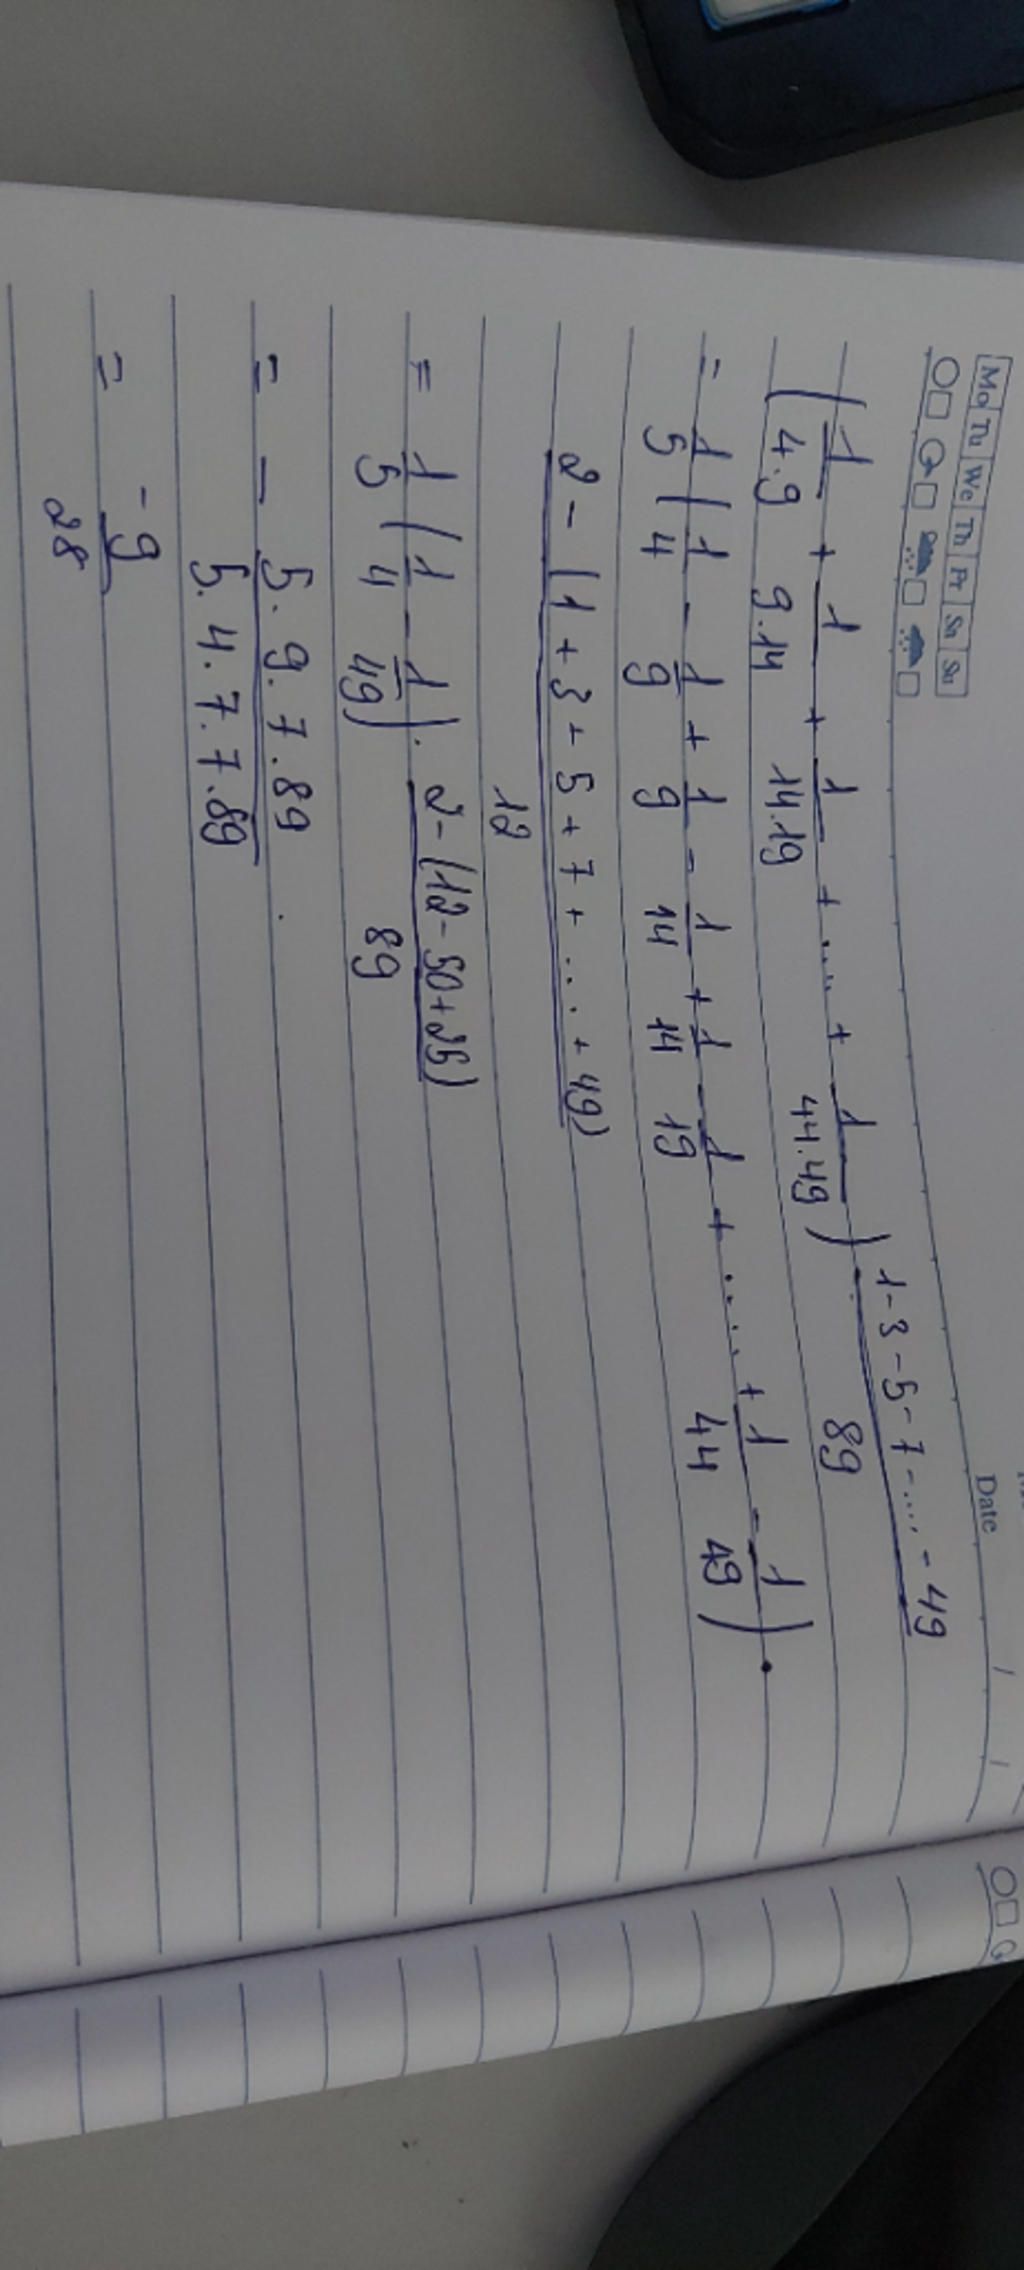 Mo Tu We Th Fr Sa Su
Date / /
(1/4.9 + 1/9.14 + 1/14.19 + .... + 1/44.49) . 1-3-5-7-....-49/89
= 1/5 (1/4 - 1/9 + 1/9 - 1/14 + 1/14 - 1/19 + ..... + 1/44 - 1/49) .
2-(1+3+5+7+....+49)/12
= 1/5 (1/4 - 1/49) . 2-(12-50+25)/89
= - 5.9.7.89/5.4.7.7.89
= -9/28